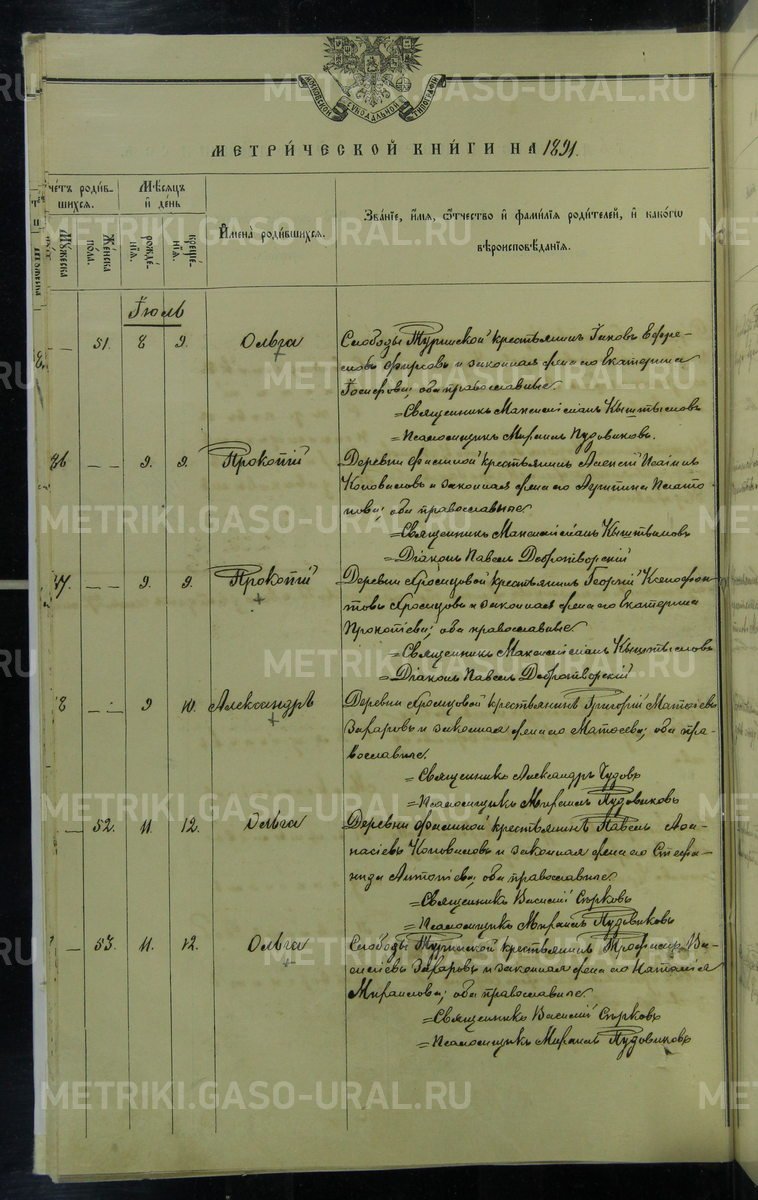 МОСКОВСКОЙ СѴНОДАЛЬНОЙ ТИПОГРАФІИ
МЕТРИ́ЧЕСКОЙ КНИ́ГИ НА 1891.
че́тъ роди́в-
шихся.
Мѣ́сяцъ
и҆ де́нь
И҆мена̀ роди́вшихся.
Зва́нїе, и҆́мя, ѻ҆́тчество и҆ фами́лїя роди́телей, и҆ како́гѡ
вѣроисповѣ́данїя.
Мꙋ́жеска
Же́нска
по́ла.
рожде́-
нїя.
креще́-
нїя.
Іюль
— 51. 8 9. Ольга
Слободы Туринской крестьянинъ Іаковъ Ефре-
мовъ Фирсовъ и законная жена его Екатерина
Іосифова; оба православные.
= Священникъ Максимиліанъ Кыштымовъ
= Псаломщикъ Михаилъ Пудовиковъ.
46 — 9. 9. Прокопій
Деревни крестьянинъ Алексій
Коновалова и законная жена его Плато-
нова; оба православные.
= Священникъ Максимиліанъ Кыштымовъ
= Діаконъ Павелъ Добротворскій
47. — 9. 9. Прокопій
Деревни крестьянинъ Георгій Ксенофон-
товъ и законная жена его Екатерина
Прокопіева; оба православные.
= Священникъ Максимиліанъ Кыштымовъ
= Діаконъ Павелъ Добротворскій
8 — 9 10. Александръ
Деревни крестьянинъ Григорій Матѳіевъ
Захаровъ и законная жена его оба пра-
вославные.
= Священникъ Александръ Чудовъ
= Псаломщикъ Михаилъ Пудовиковъ
— 52. 11. 12. Ольга
Деревни крестьянинъ Павелъ Аѳа-
насіевъ Коноваловъ и законная жена его Стефа-
нида Антоніева; оба православные.
= Священникъ Василій Сѣрковъ
= Псаломщикъ Михаилъ Пудовиковъ
— 53. 11. 12. Ольга
Слободы Туринской крестьянинъ Трофимъ Ва-
силіевъ Захаровъ и законная жена его Наталія
Михаилова; оба православные.
= Священникъ Василій Сѣрковъ
= Псаломщикъ Михаилъ Пудовиковъ
METRIKI.GASO-URAL.RU